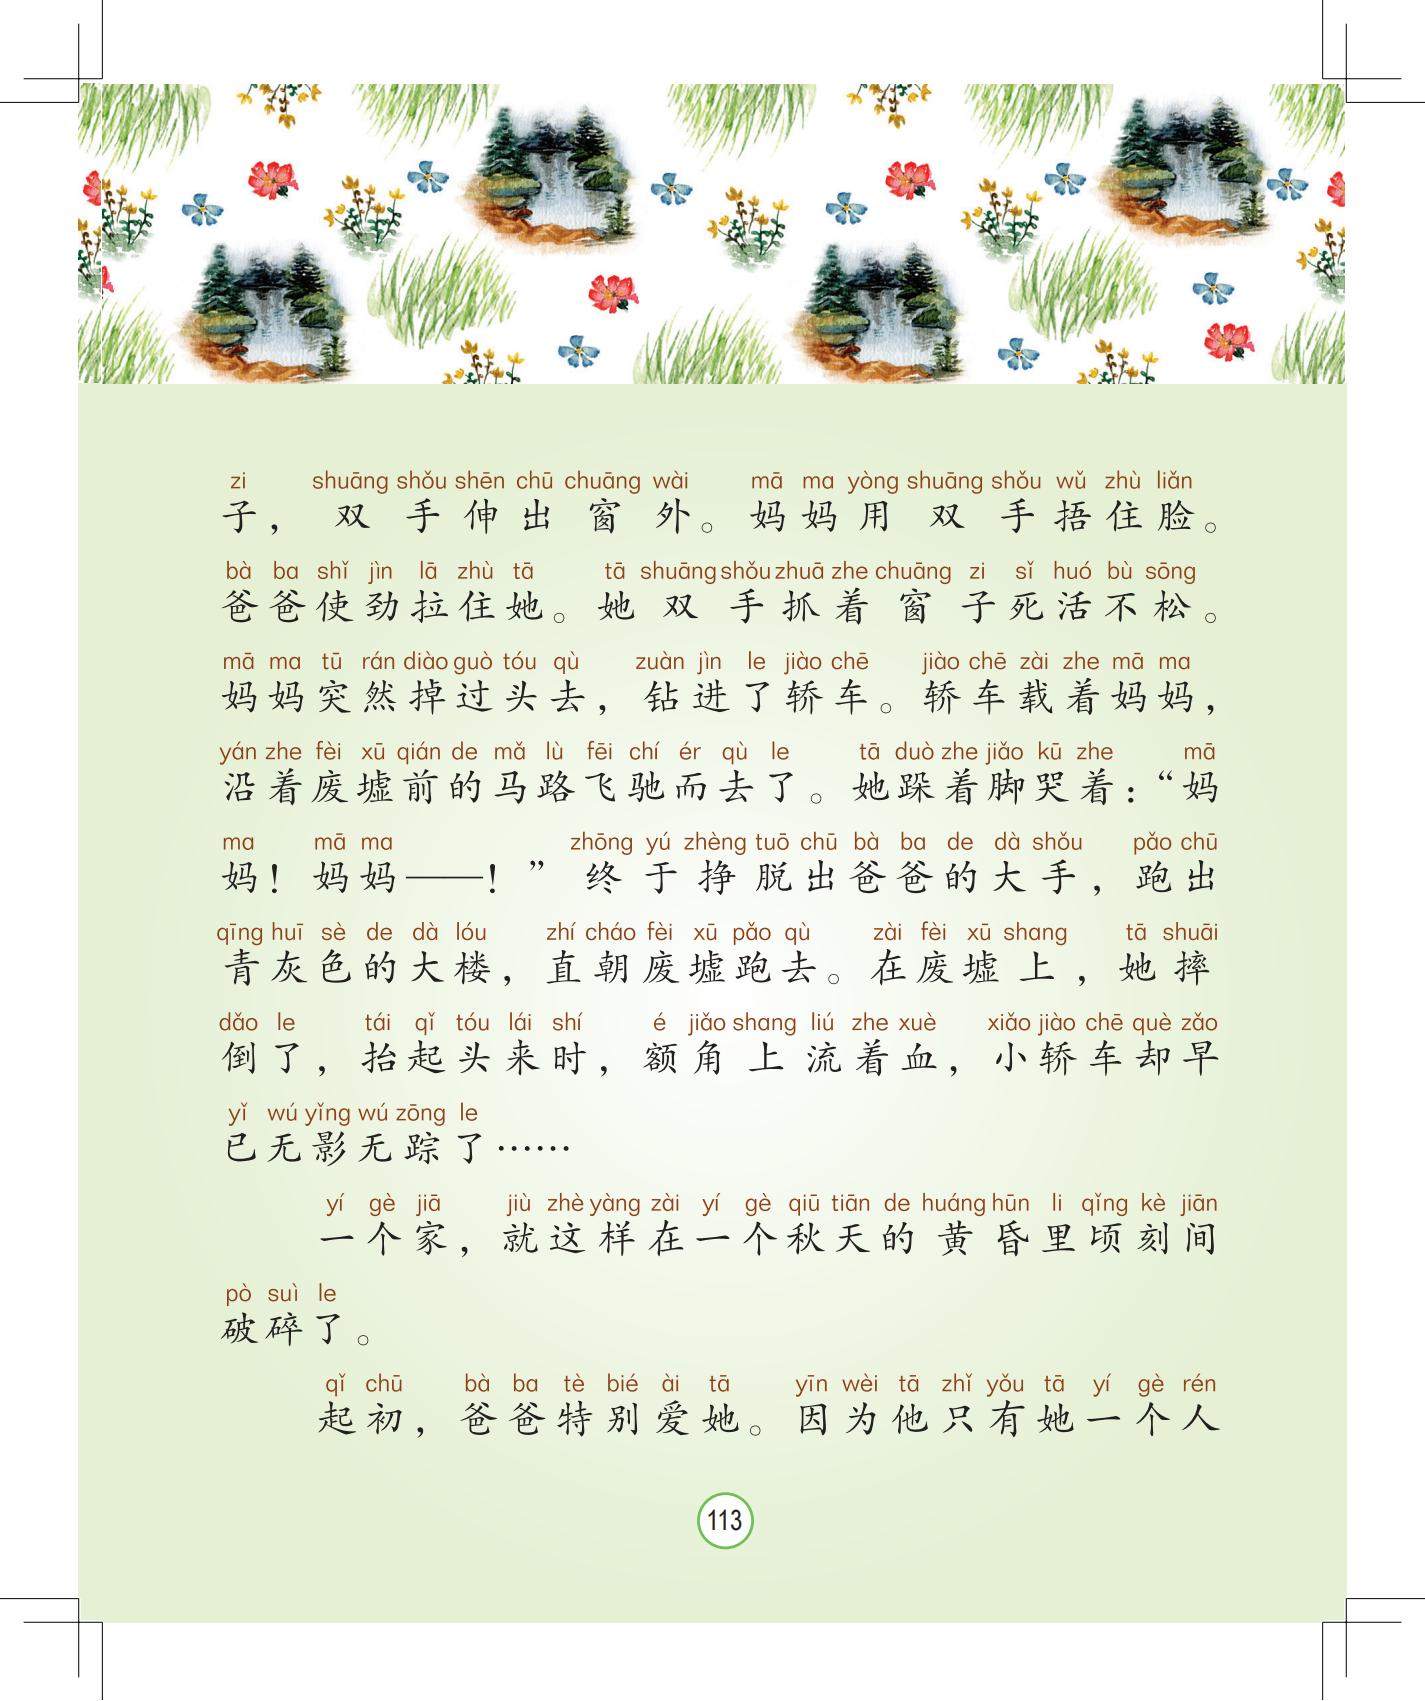 zi shuāng shǒu shēn chū chuāng wài mā ma yòng shuāng shǒu wǔ zhù liǎn
子，双手伸出窗外。妈妈用双手捂住脸。
bà ba shǐ jìn lā zhù tā tā shuāng shǒu zhuā zhe chuāng zi sǐ huó bù sōng
爸爸使劲拉住她。她双手抓着窗子死活不松。
mā ma tū rán diào guò tóu qù zuàn jìn le jiào chē jiào chē zài zhe mā ma
妈妈突然掉过头去，钻进了轿车。轿车载着妈妈，
yán zhe fèi xū qián de mǎ lù fēi chí ér qù le tā duò zhe jiǎo kū zhe mā
沿着废墟前的马路飞驰而去了。她跺着脚哭着：“妈
ma mā ma zhōng yú zhèng tuō chū bà ba de dà shǒu pǎo chū
妈！妈妈——！”终于挣脱出爸爸的大手，跑出
qīng huī sè de dà lóu zhí cháo fèi xū pǎo qù zài fèi xū shang tā shuāi
青灰色的大楼，直朝废墟跑去。在废墟上，她摔
dǎo le tái qǐ tóu lái shí é jiǎo shang liú zhe xuè xiǎo jiào chē què zǎo
倒了，抬起头来时，额角上流着血，小轿车却早
yǐ wú yǐng wú zōng le
已无影无踪了……
yí gè jiā jiù zhè yàng zài yí gè qiū tiān de huáng hūn li qǐng kè jiān
一个家，就这样在一个秋天的黄昏里顷刻间
pò suì le
破碎了。
qǐ chū bà ba tè bié ài tā yīn wèi tā zhǐ yǒu tā yí gè rén
起初，爸爸特别爱她。因为他只有她一个人
113